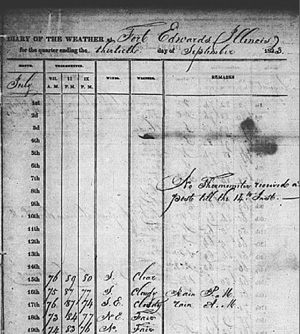 DIARY OF THE WEATHER at Fort Edwards (Illinois)
for the quarter ending the thirtieth day of September 182
MONTH. THERMOMETER. WINDS. WEATHER. REMARKS
July VII. A. M. II P. M. IX P. M.
1st
2d
3d
4th
5th
6th
7th No Thermometer received at
8th post till the 14th Inst.
9th
10th
11th
12th
13th
14th
15th 76 89 80 S. Clear
16th 75 87 77 S Cloudy Rain P. M.
17th 76 87 74 S. E. Cloudy rain A. M
18th 73 84 77 N E Fair
19th 74 83 76 N. Fair